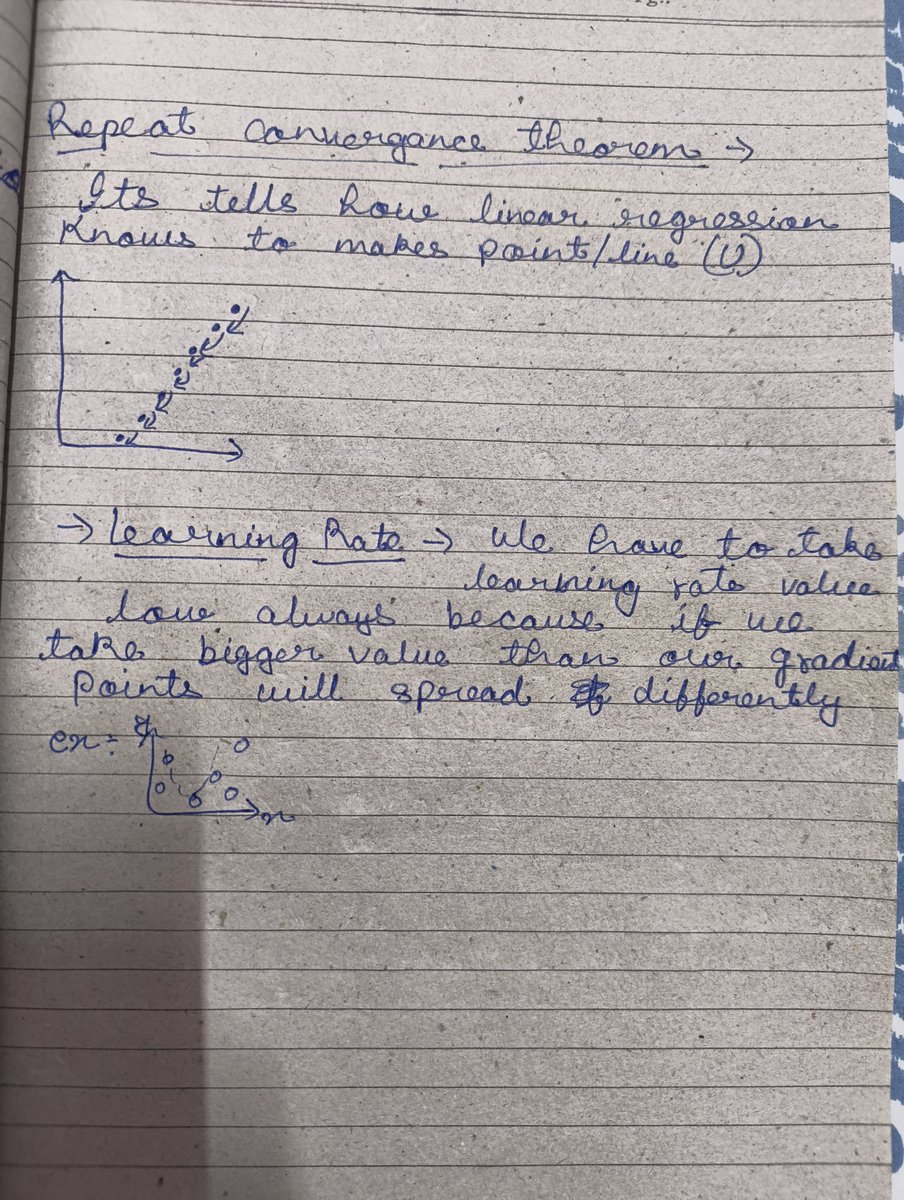 Repeat Convergance theorem →
Its tells how linear regression
Knows to makes point/line (U)
→ Learning Rate → We have to take
learning rate value
low always because if we
take bigger value than our gradient
points will spread differently
ex:- y
x